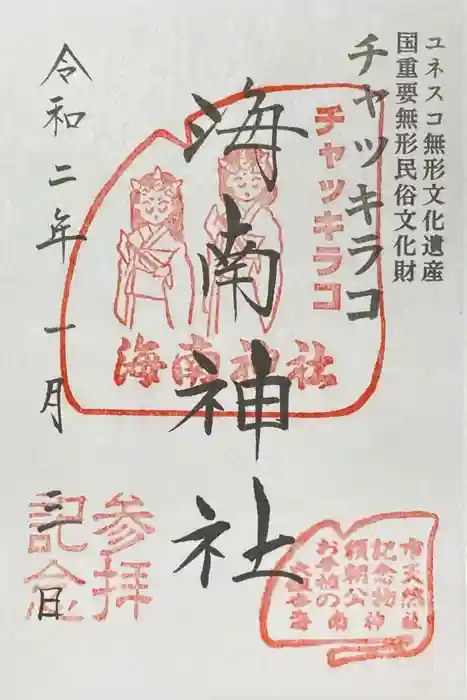 ユネスコ無形文化遺産
国重要無形民俗文化財
チャッキラコ
チャッキラコ
海南神社
海南神社
令和二年一月三日
参拝
記念
市天然
記念物
頼朝公
お手植の
海南神社